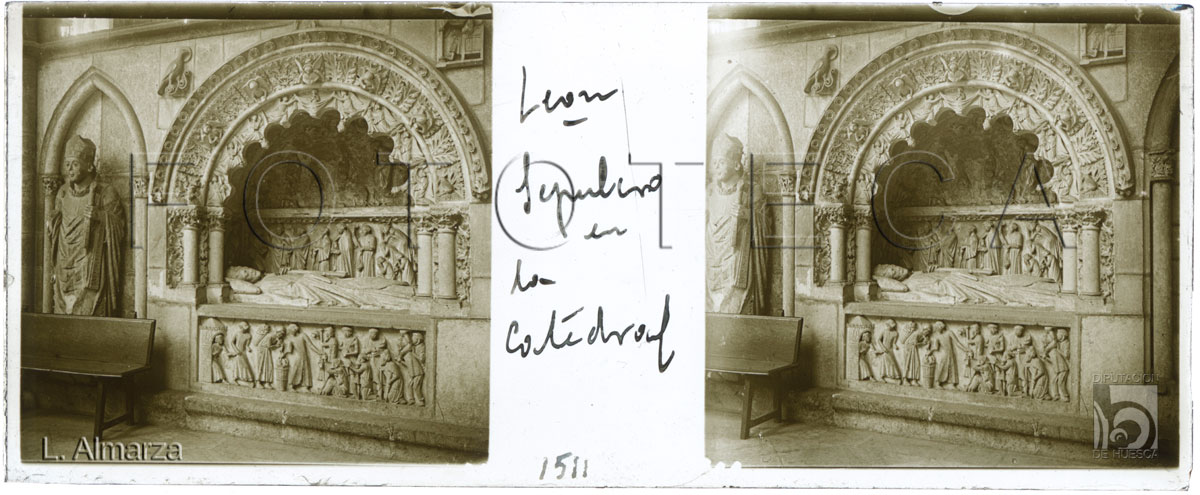 Leon
Sepulcro
en
la
Catedral
1511
FOTOTECA
L. Almarza
DIPUTACIÓN
DE HUESCA